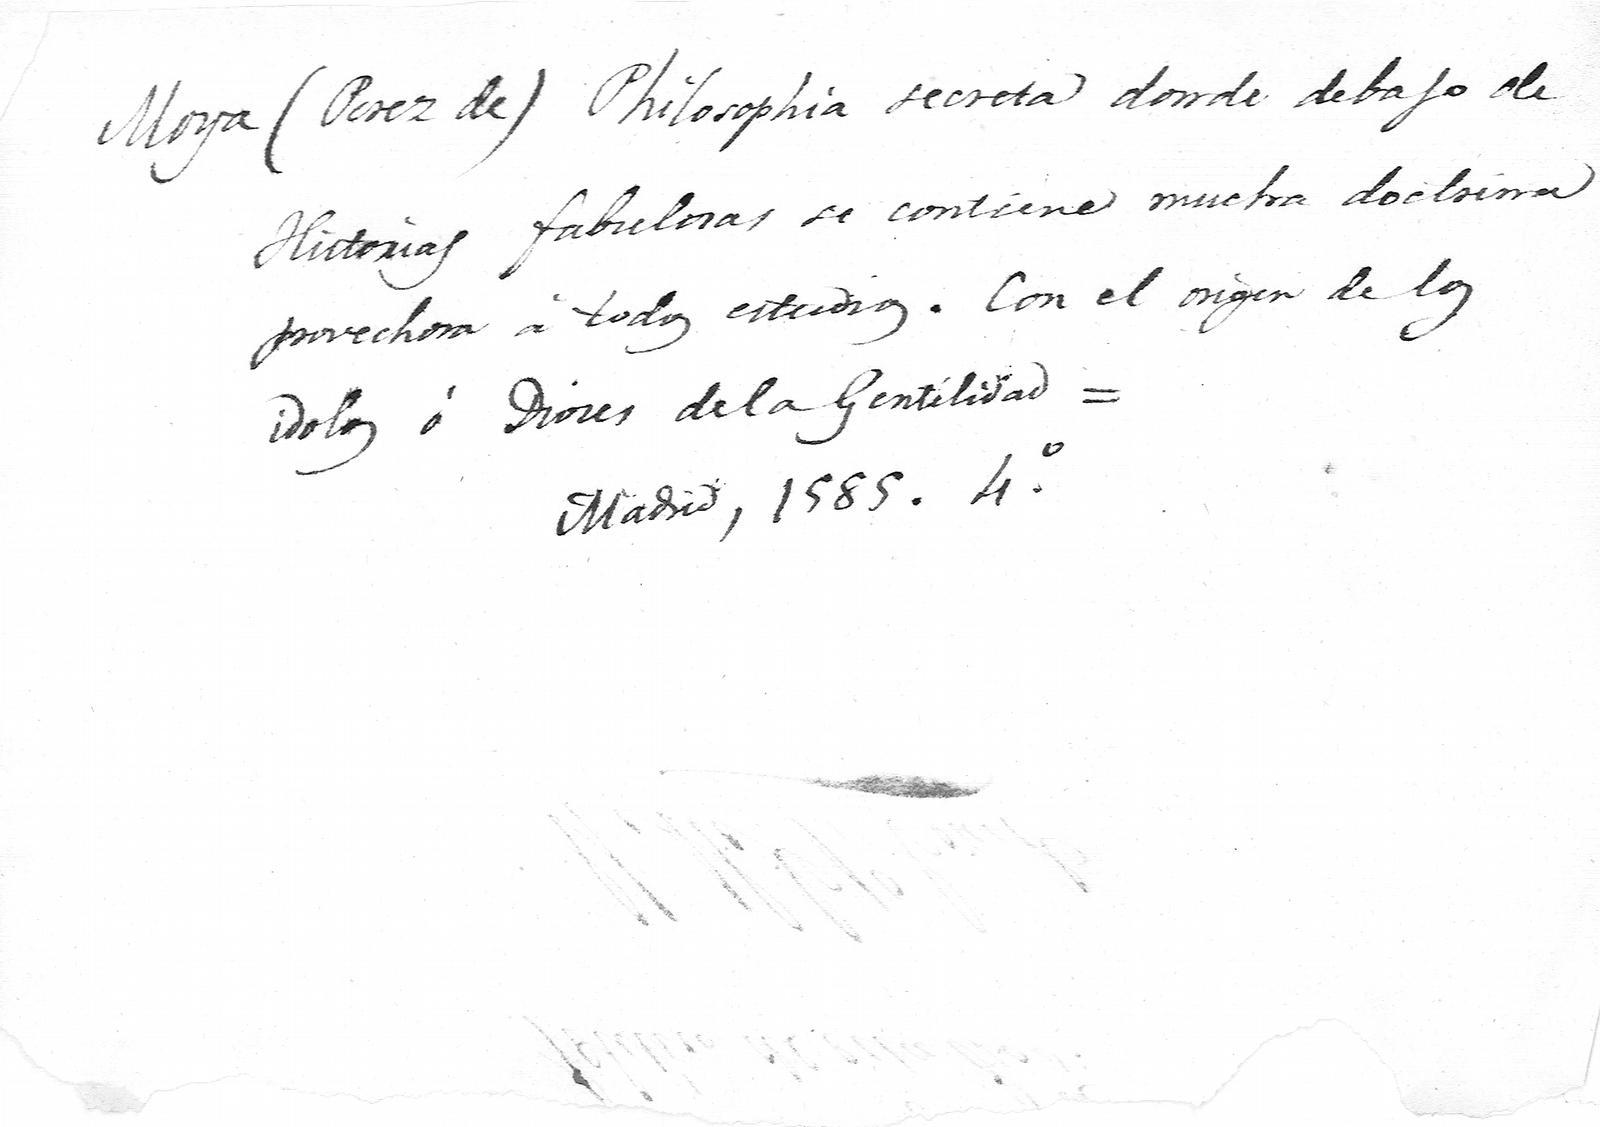 Moya (Perez de) Philosophia secreta donde debajo de
Historias fabulosas se contiene mucha doctrina
provechosa á todos estudios. Con el origen de los
idolos ó Dioses de la Gentilidad =
Madrid, 1585. 4.º